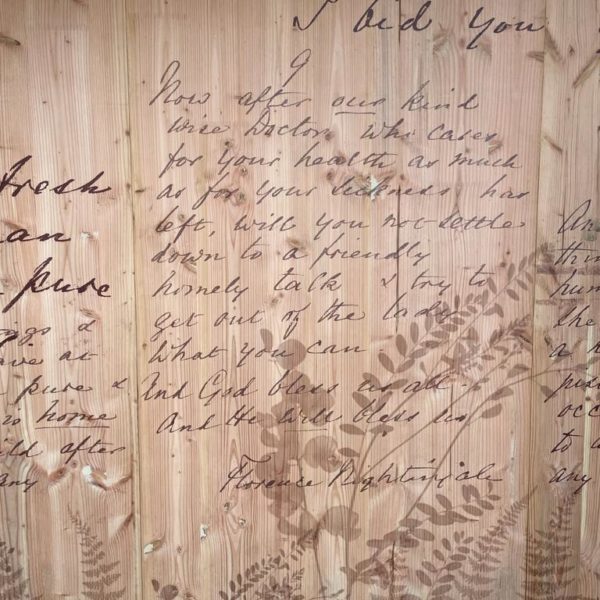 I bid you
9
Now after our kind
wise Doctor who cares
for your health as much
as for your sickness has
left, will you not settle
down to a friendly
homely talk & try to
get out of the lady
what you can
And God bless us all -
And He will bless us
Florence Nightingale
fresh
an
pure
&
at
pure &
home
after
any
An
thin
hum
she
a h
occ
to a
any